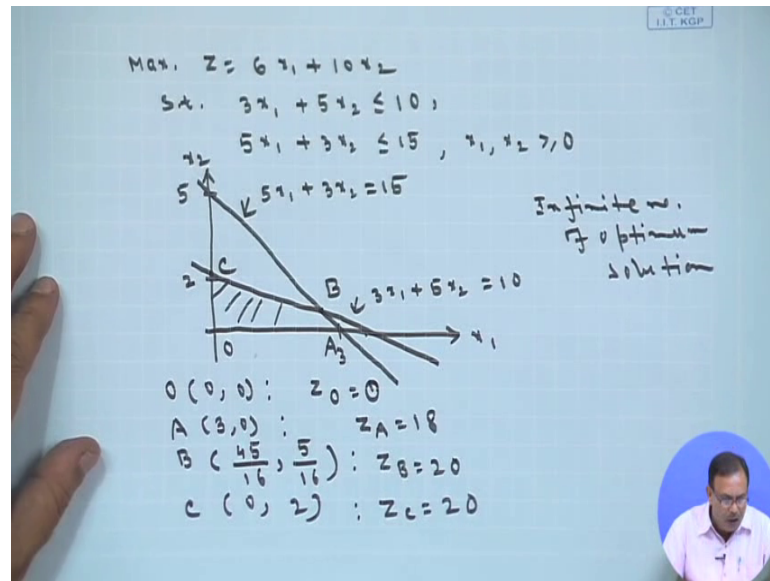 © CET
I.I.T. KGP
Max. Z = 6x₁ + 10x₂
S.t. 3x₁ + 5x₂ ≤ 10,
5x₁ + 3x₂ ≤ 15, x₁, x₂ ≥ 0
x₂
5
5x₁ + 3x₂ = 15
Infinite no.
of optimum
solution
2
C
B
3x₁ + 5x₂ = 10
O
A
3
x₁
O (0, 0) : Z₀ = 0
A (3, 0) : Z_A = 18
B (45/16, 5/16) : Z_B = 20
C (0, 2) : Z_C = 20